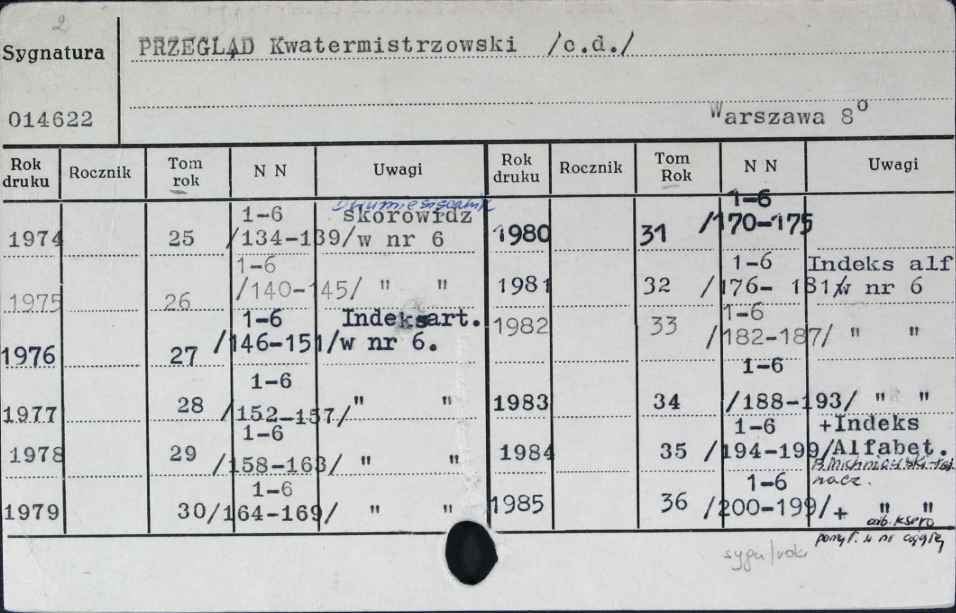 2
Sygnatura PRZEGLĄD Kwatermistrzowski /c.d./
014622 Warszawa 8°
Rok druku Rocznik Tom rok N N Uwagi Rok druku Rocznik Tom Rok N N Uwagi
Dwumiesięcznik
1974 25 1-6 /134-139/ skorowidz w nr 6
1975 26 1-6 /140-145/ " "
1976 27 1-6 /146-151/ Indeks art. w nr 6.
1977 28 1-6 /152-157/ " "
1978 29 1-6 /158-163/ " "
1979 30 1-6 /164-169/ " "
1980 31 1-6 /170-175
1981 32 1-6 /176- 181/ Indeks alf w nr 6
1982 33 1-6 /182-187/ " "
1983 34 1-6 /188-193/ " "
1984 35 1-6 /194-199/ +Indeks Alfabet.
nacz.
1985 36 1-6 /200-199/ + " "
ksero
w nr
sygn/rok